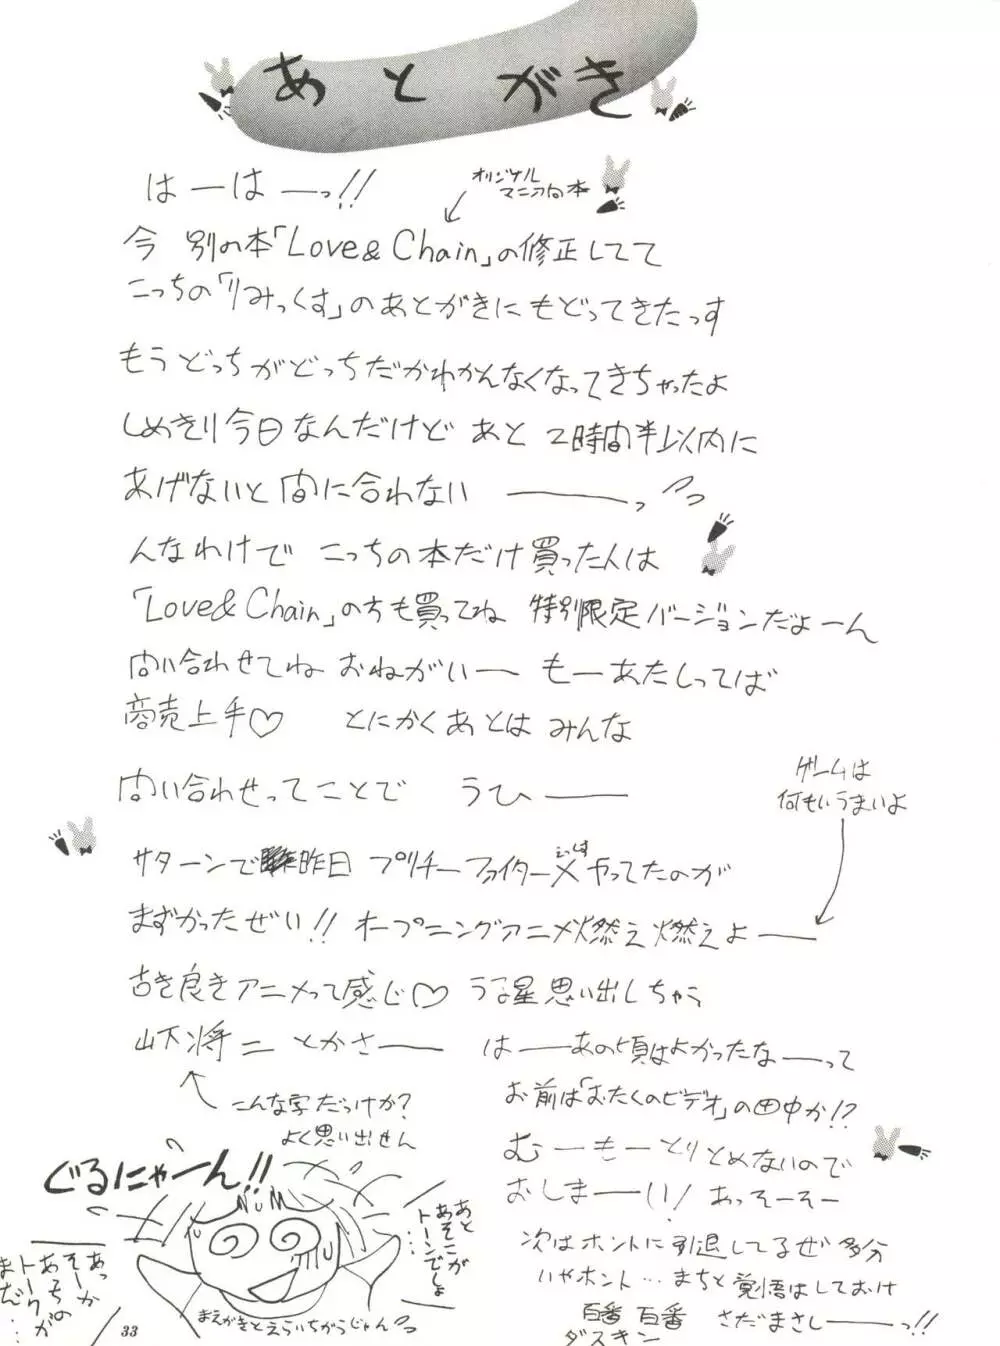 あとがき
はーはーっ!!
オリジナル
マニア向本
今 別の本「Love & Chain」の修正してて
こっちの「りみっくす」のあとがきにもどってきたっす
もうどっちがどっちだかわかんなくなってきちゃったよ
しめきり今日なんだけど あと 2時間半以内に
あげないと間に合わない ーーっ
んなわけで こっちの本だけ買った人は
「Love & Chain」の方も買ってね 特別限定バージョンだよーん
問い合わせてね おねがいー もーあたしってば
商売上手♡ とにかくあとは みんな
問い合わせってことで うひーー
ゲームは
何もいうまいよ
サターンで昨日 プリチーファイターX やってたのが
まずかったぜい!! オープニングアニメ燃え燃えよーー
古き良きアニメって感じ♡ うる星思い出しちゃう
山下将二 とかさーー はーーあの頃はよかったなーーって
こんな字だっけか?
よく思い出せん
お前は「おたくのビデオ」の田中か!?
むーもーとりとめないので
おしまーーい! あっそーそー
次はホントに引退してるぜ 多分
いやホント…まちと覚悟はしておけ
百番 百番 さだまさしーーっ!!
ダスキン
ぐるにゃーん!!
NUM
あと
あそこが
トーンでしょ
……
あっか
そーか
あっちの
トークが
まだ…
まえがきとえらいちがうじゃん
33